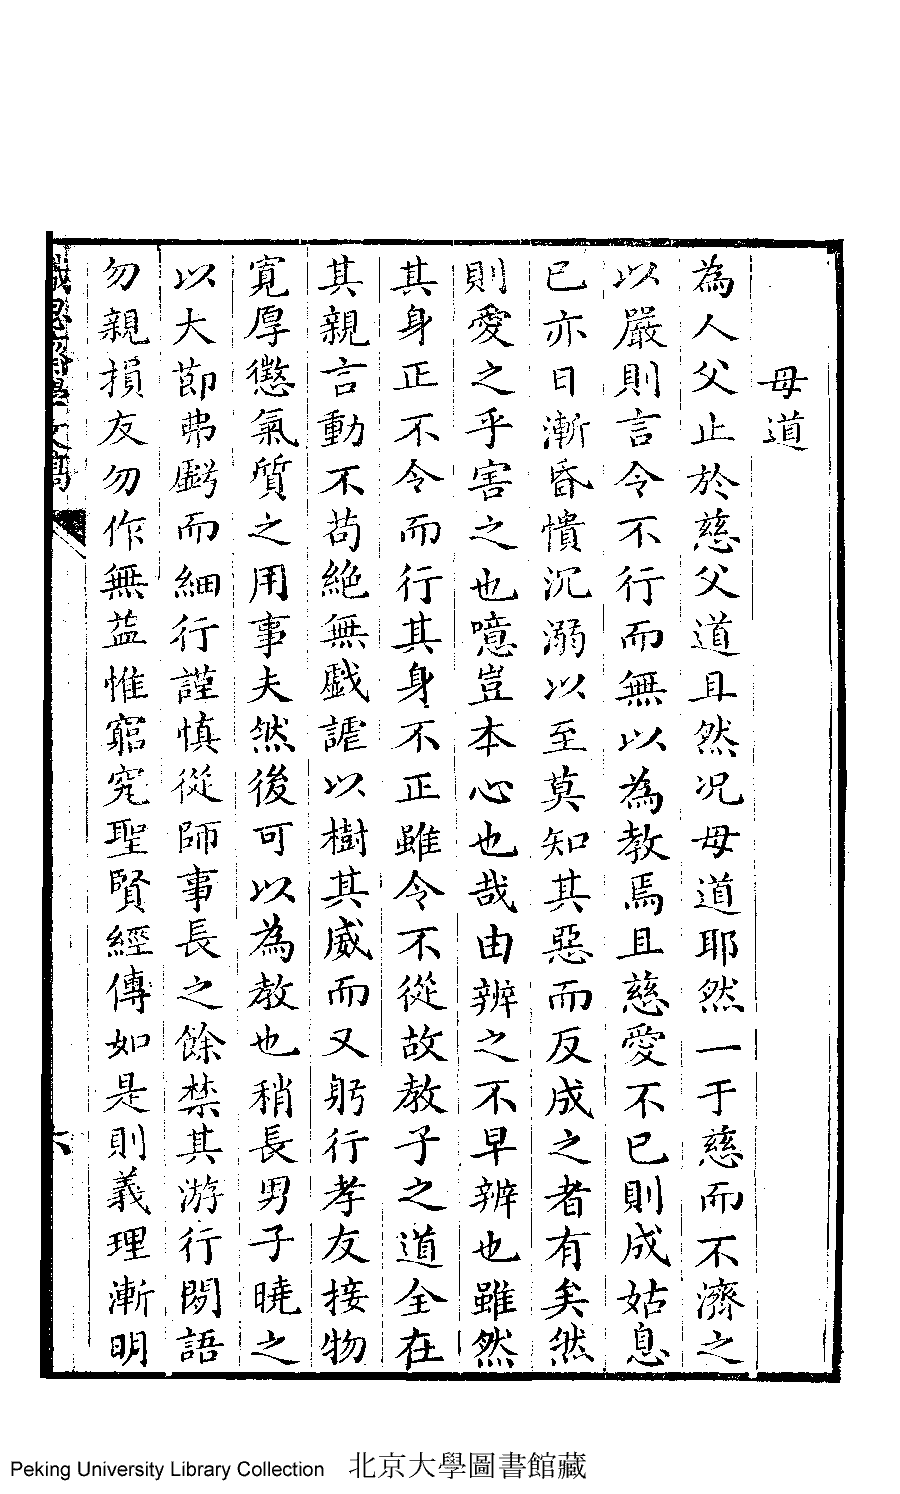 母道
為人父止於慈父道且然况母道耶然一于慈而不濟之
以嚴則言令不行而無以為教焉且慈愛不已則成姑息
已亦日漸昏憒沉溺以至莫知其惡而反成之者有矣然
則愛之乎害之也噫豈本心也哉由辨之不早辨也雖然
其身正不令而行其身不正雖令不從故教子之道全在
其親言動不苟絶無戲謔以樹其威而又躬行孝友接物
寛厚懲氣質之用事夫然後可以為教也稍長男子曉之
以大節弗虧而細行謹慎從師事長之餘禁其游行閙語
勿親損友勿作無益惟窮究聖賢經傳如是則義理漸明
文蒿
六
Peking University Library Collection 北京大學圖書館藏